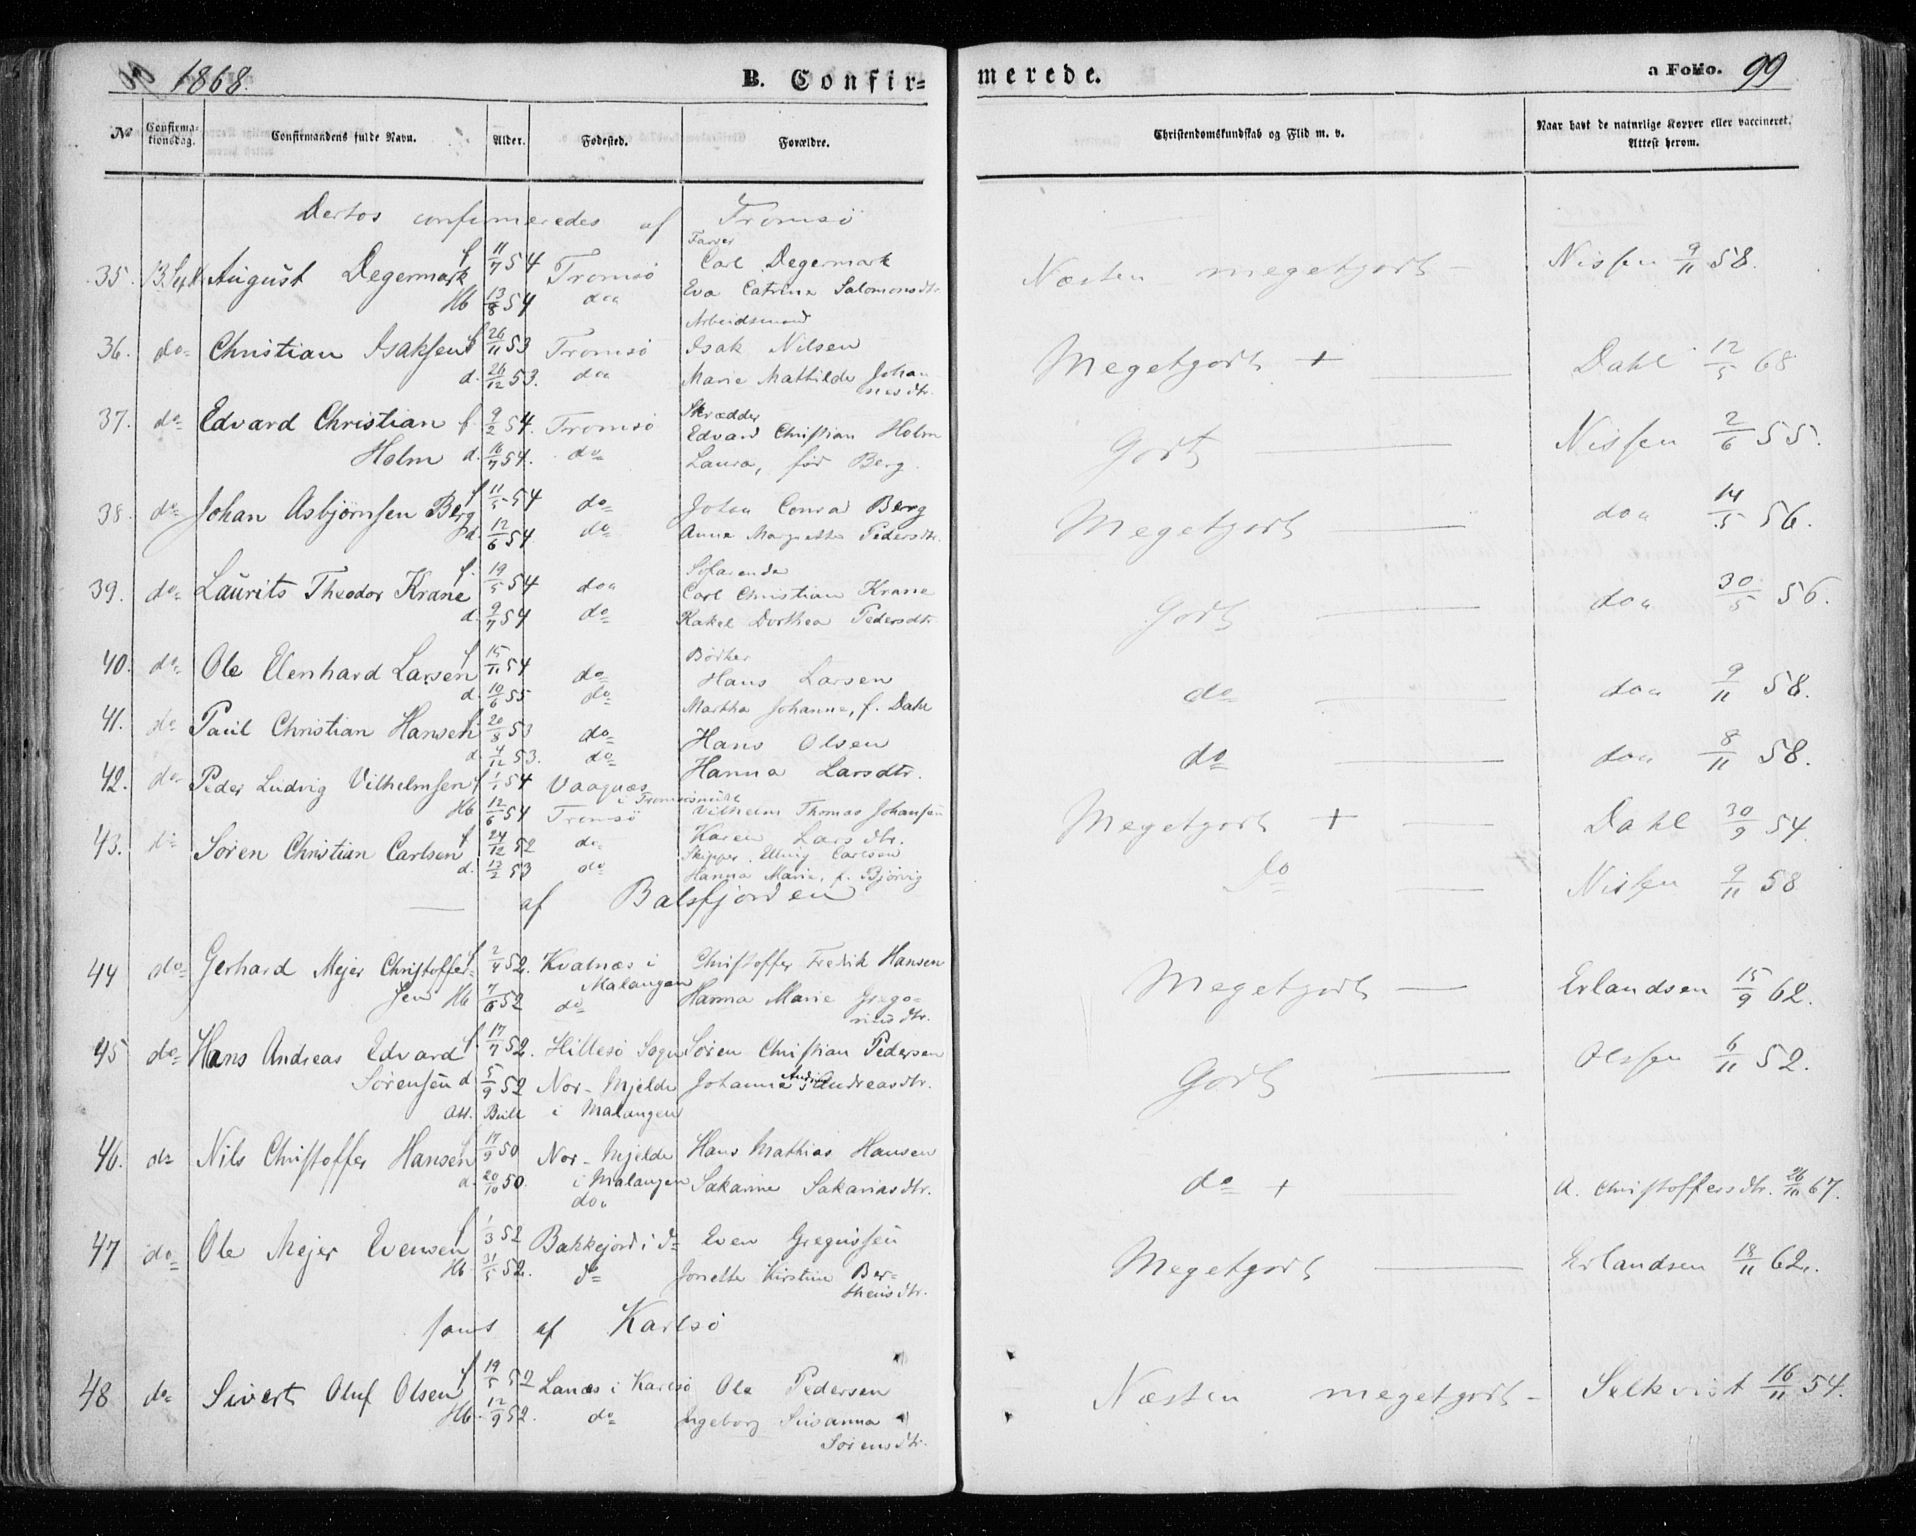 1868. B. Confir=
merede. a Folio. 99
No Confirma-tionsdag. Confirmandens fulde Navn. Alder. Fødested. Forældre. Christendomskundskab og Flid m. v. Naar havt de naturlige Kopper eller vaccineret. Attest herom.
confirmeredes af Tromsö
Farver
35. 13 Sept August Degermark f 11/7 54 Tromsö Carl Degermark Næsten megetgodt – Nissen 9/11 58.
Hb 13/8 54 do Eva Catrine Salomonsdtr
Arbeidsmand
36. do Christian Isaksen f 26/11 53 Tromsö Isak Nilsen Megetgodt + — Dahl 12/5 68
d. 26/12 53. do Marie Mathilde Johan
nesdtr.
Skrædder
37. do Edvard Christian f. 9/2 54. Tromsö Edvard Christian Holm Godt — Nissen 2/6 55.
Holm d. 16/7 54. do Laura, föd Berg.
38. do Johan Asbjörnsen Berg f 11/5 54 do Johan Conrad Berg Megetgodt — do 14/5 56.
d. 12/6 54 do Anna Margrethe Pedersdtr.
Söfarende
39. do Laurits Theodor Krane f. 19/5 54 do Carl Christian Krane Godt — do 30/5 56.
d. 9/7 54 do Rakel Dorthea Pedersdtr.
Bödker
40. do Ole Edenhard Larsen f 15/11 54 do Hans Larsen do — do 9/11 58.
d. 10/6 55 do Martha Johanne, f. Dahl
41. do Paul Christian Hansen f. 20/8 53 do Hans Olsen do — do 8/11 58.
d. 4/12 53. do Hanna Larsdtr.
42. do Peder Ludvig Vilhelmsen f 1/1 54 Vaagnæs i Tromsösund Vilhelm Thomas Johansen Megetgodt + — Dahl 30/9 54.
Hb 12/6 54 Tromsö Karen Larsdtr.
43. do Sören Christian Carlsen f 24/12 52 do Skipper Elling Carlsen Do — Nissen 9/11 58
d. 13/2 53 do Hanna Marie, f. Bjørvig
— af Balsfjorden
44 do Gerhard Mejer Christoffer- f 2/4 52. Kvalnæs i Malangen Christoffer Fredrik Hansen Megetgodt — Erlandsen 15/9 62.
sen Hb 7/6 52 do Hanna Marie Grego-
riusdtr.
45 do Hans Andreas Edvard f 17/7 52. Hillesö Sogn Sören Christian Pedersen Godt — Olssen 6/11 52.
Sörensen d 5/9 52 Nor-Mjelde Johanna Andreasdtr.
Att. Bull i Malangen
46. do Nils Christoffer Hansen f 17/9 50 Nor-Mjelde i Malangen Hans Mathias Hansen do + A. Christoffersdtr. 26/11 67.
d. 20/10 50. do Sakarine Sakariasdtr.
47 do Ole Mejer Evensen f 1/3 52 Bakkejord i do Even Gregussen Megetgodt — Erlandsen 18/11 62.
Hb 31/5 52. do Jonetta Kirstine Ber-
theusdtr.
samt af Karlsö
48 do Sivert Oluf Olsen f 19/5 52 Lanæs i Karlsö Ole Pedersen Næsten megetgodt – Selkvist 16/11 54.
Hb. 12/9 52. do Ingeborg Susanna
Sörensdtr.